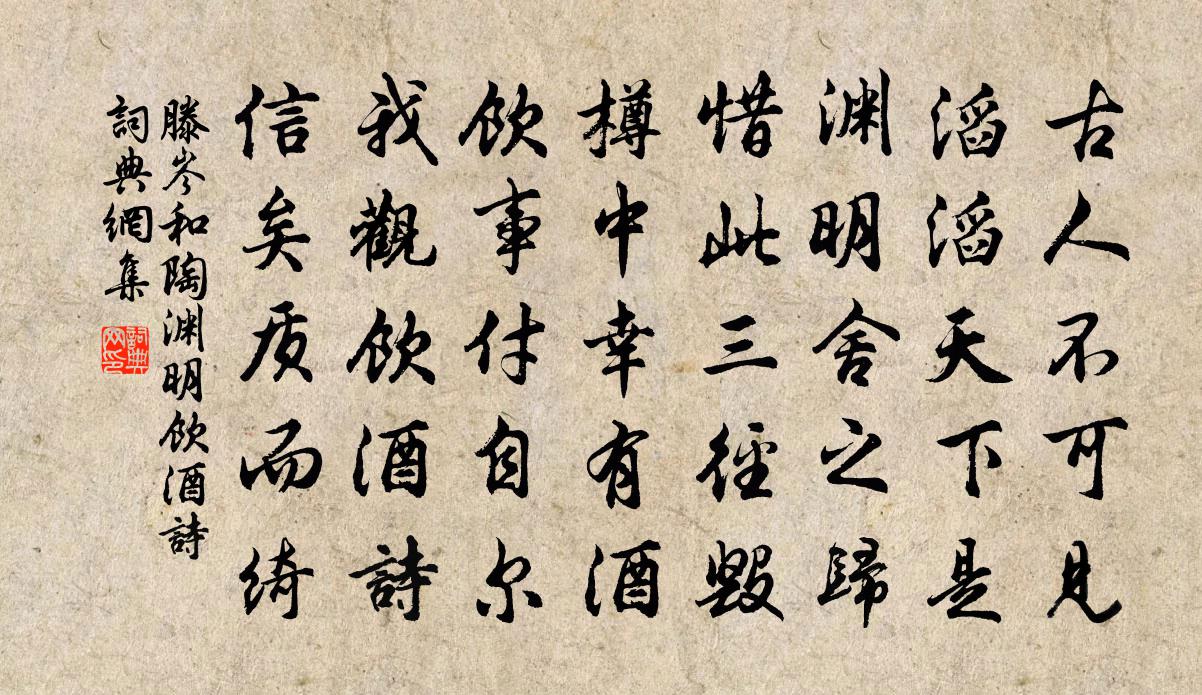 古人不可見
滔滔天下是
渊明舍之歸
惜此三徑毀
樽中幸有酒
飲事付自尔
我觀飲酒詩
信矣质而绮
滕岑和陶渊明飲酒詩
詞典網集
詞典网印